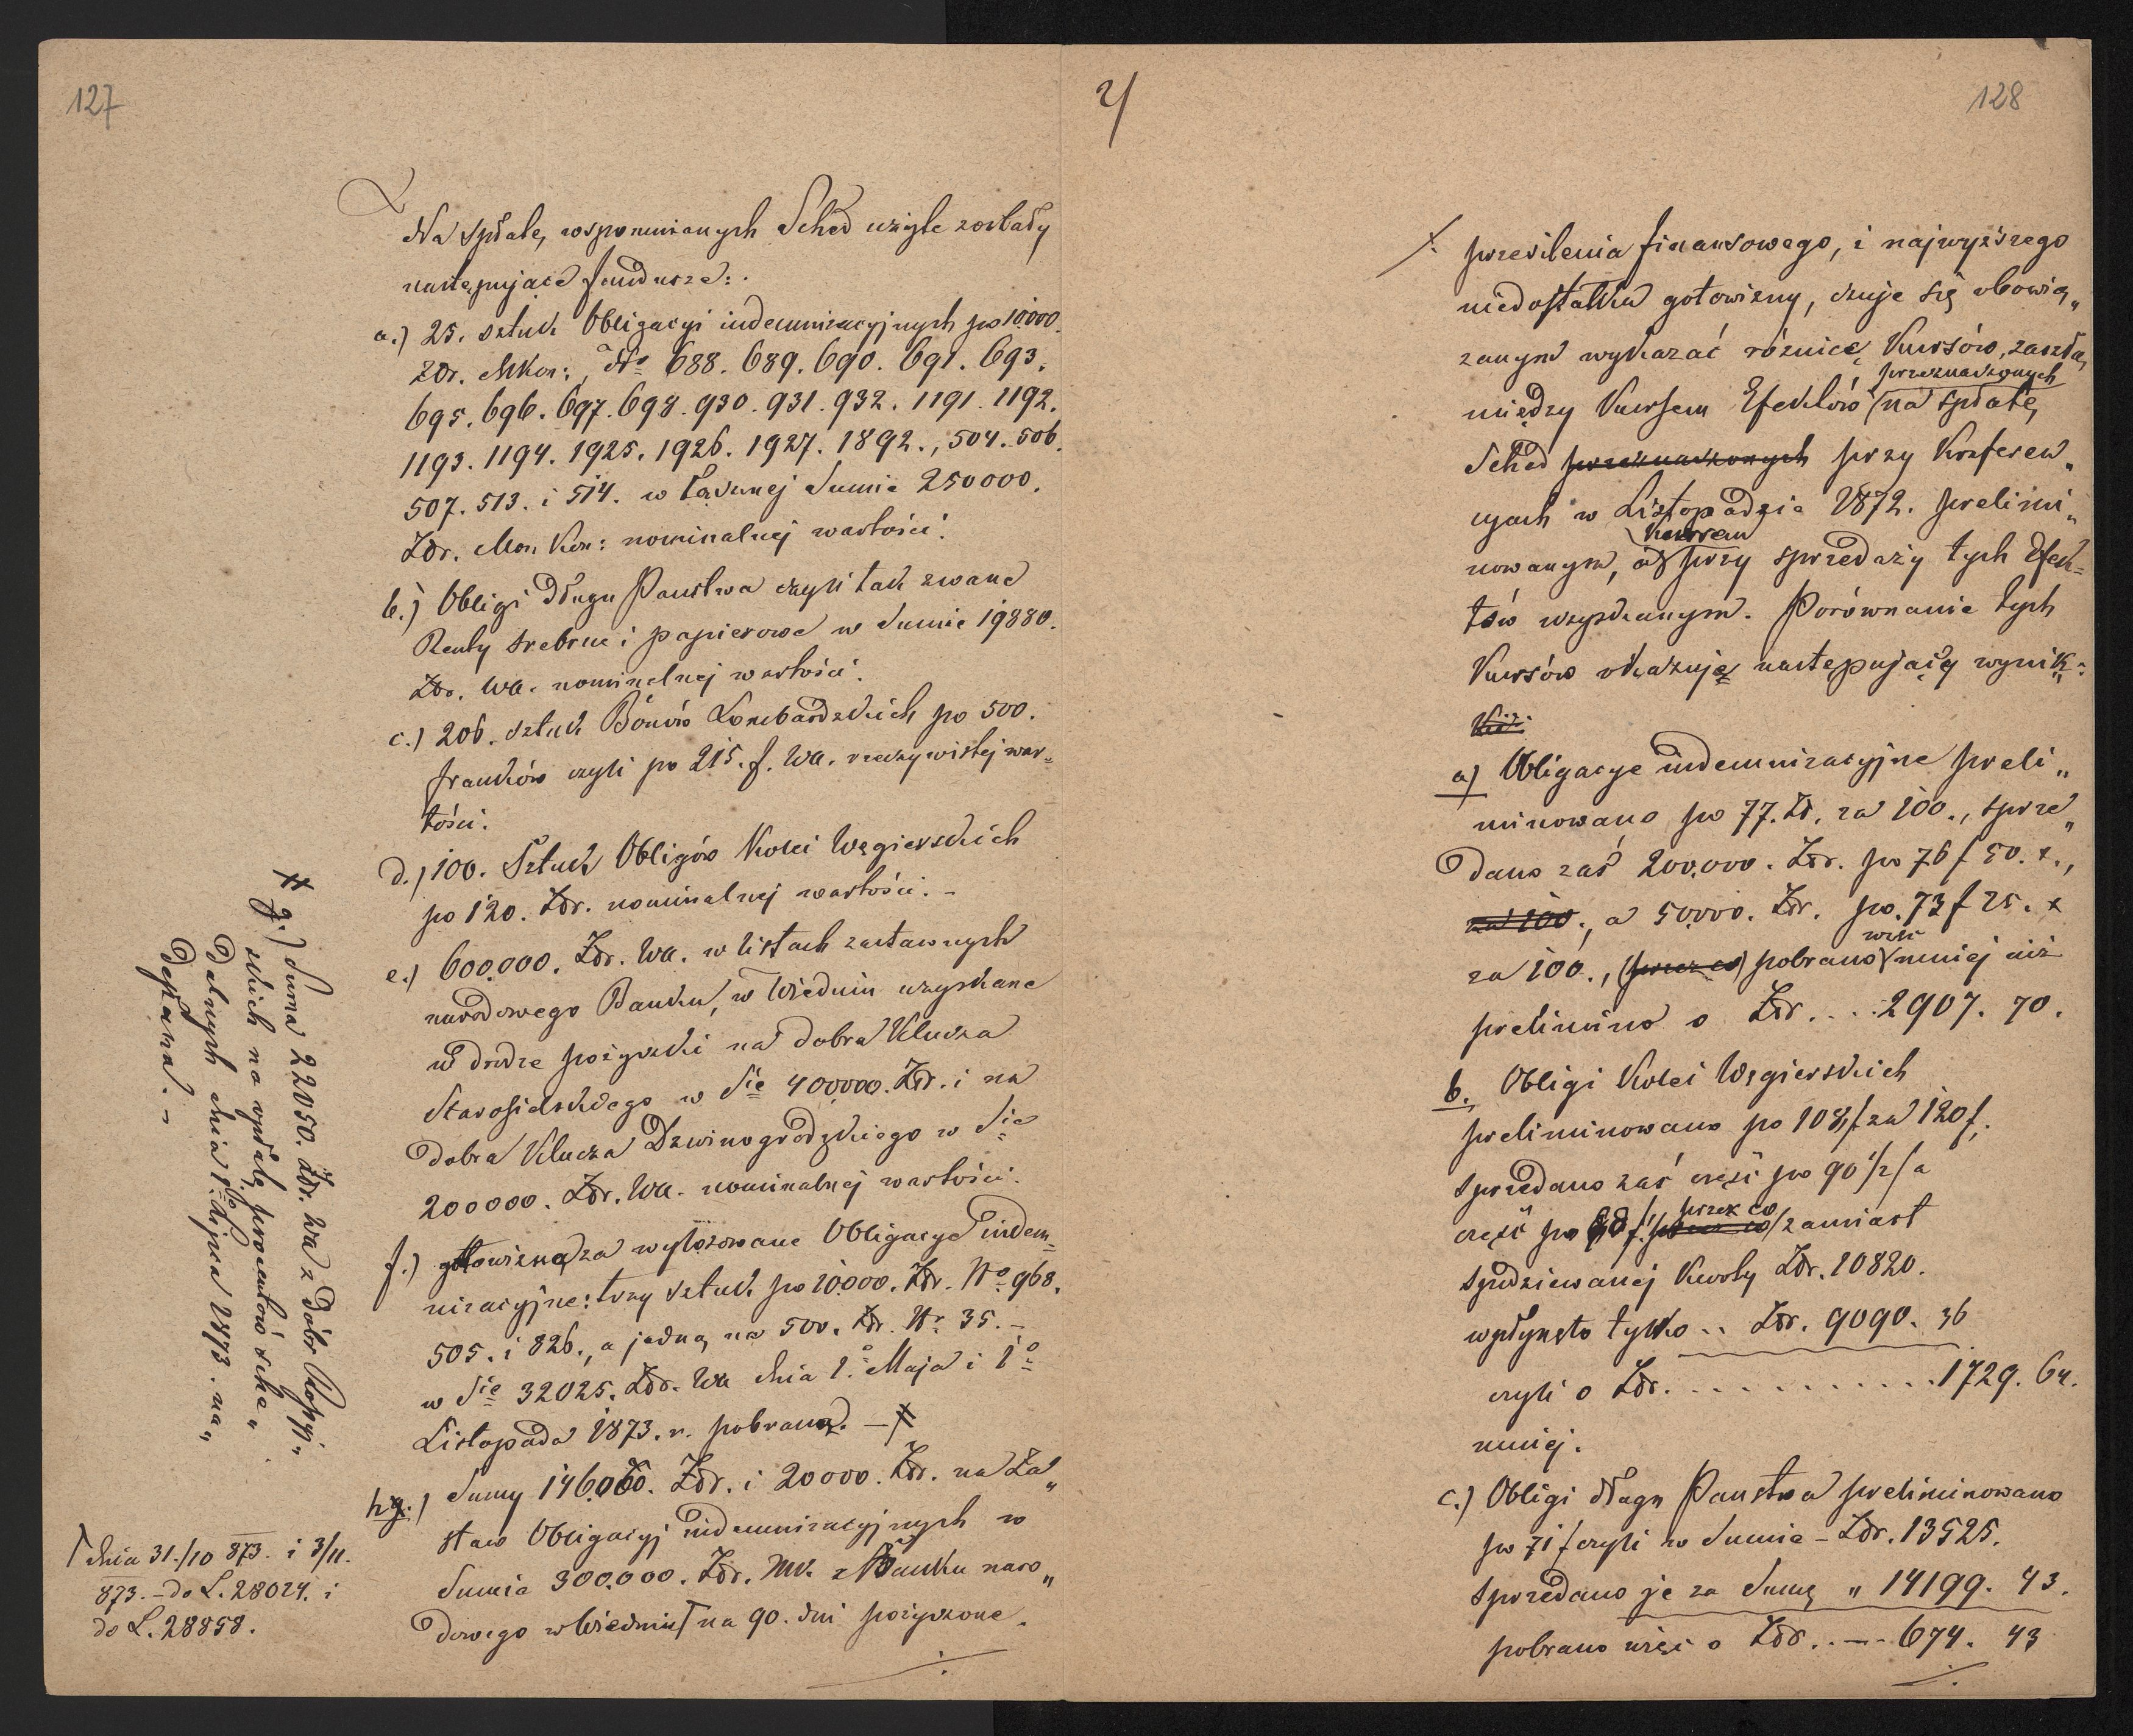 127
Na spłatę wspomnianych Sched użyte zostały
następujące fundusze:
a.) 25. sztuk Obligacyi indemnizacyjnych po 10000.
Złr. MKon: No 688. 689. 690. 691. 693.
695. 696. 697. 698. 930. 931. 932. 1191. 1192.
1193. 1194. 1925. 1926. 1927. 1892., 504. 506.
507. 513. i 514. w łącznej Sumie 250000.
Złr. Mon Kon: nominalnej wartości.
b.) Obligi długu Państwa czyli tak zwane
Renty srebrne i papierowe w Sumie 19880.
Złr. Wa. nominalnej wartości.
c.) 206. sztuk Bonów Lombardzkich po 500.
franków czyli po 215. f. Wa. rzeczywistej war=
tości.
d.) 100. Sztuk Obligów Kolei Węgierskich
po 120. Złr. nominalnej wartości. -
e.) 600,000. Złr. Wa. w listach zastawnych
narodowego Banku, w Wiedniu uzyskane
w drodze pożyczki na dobra Klucza
Starosielskiego w Sie 400000. Złr. i na
dobra Klucza Dzwinogrodzkiego w Sie
200000. Złr. Wa. nominalnej wartości.
f.) gotowizna za wylosowane Obligacye indem=
nizacyjne: trzy sztuk po 10000. Złr. No 968.
505. i 826., a jedną na 500. Złr. Nr. 35. -
w Sie 32025. Złr. Wa dnia 1o Maja i 1o
Listopada 1873. r. pobrana. -
h.) Sumy 146,000. Złr. i 20000. Złr. na Za„
staw Obligacyj indemnizacyjnych w
Sumie 300,000. Złr. Mk. z Banku naro„
dowego w Wiedniu na 90. dni pożyczone.
g.) Suma 22050. Złr. Wa z Dóbr Kopyj„
skich na spłatę procentów sche„
dalnych dnia 1go Lipca 1873. na„
desłana. -
dnia 31./10 873. i 3/11.
873. - do L. 28024. i
do L. 28858.
2/
128
przesilenia finansowego, i najwyższego
niedostatku gotowizny, czuje się obowią„
zanym wykazać różnicę Kursów, zaszłą
między Kursem Efektów przeznaczonych na spłatę
Sched przeznaczonych przy Konferen„
cyach w Listopadzie 1872. prelimi„
nowanym, a Kursem przy sprzedaży tych Efek=
tów uzyskanym. Porównanie tych
Kursów okazuje następujący wynik:
a) Obligacye indemnizacyjne preli„
minowano po 77. Zł. za 100., sprze„
dano zaś 200,000. Złr. po 76 f 50. x.,
za 100., a 50,000. Złr. po. 73 f 25. x
za 100., (przez co) pobrano więc mniej niż
prelimino o Złr. . . . 2907. 70.
b., Obligi Kolei Węgierskich
preliminowano po 108, f. za 120 f.
sprzedano zaś część po 90 1/2 / a
część po f. przez co zamiast
spodziewanej Kwoty Złr. 10820.
wpłynęło tylko .. Złr. 9090. 36
czyli o Złr. . . . . . . . . . . 1729. 64.
mniej.
c.) Obligi długu Państwa preliminowano
po 71 f czyli w Sumie - Złr. 13525.
Sprzedano je za Sumę „ 14199. 43.
pobrano więc o Złr. . -- 674. 43